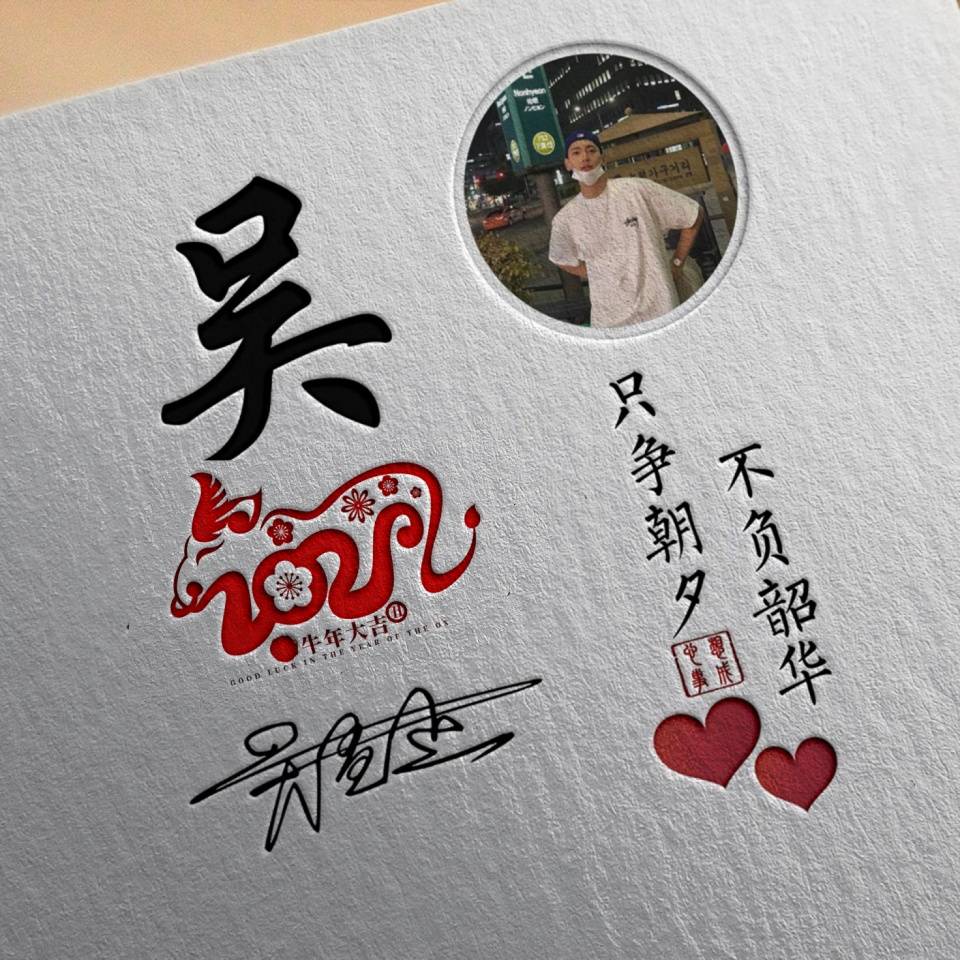 吴
Nonhyeon
论岘
牛年大吉
GOOD LUCK IN THE YEAR OF THE OX
只争朝夕
不负韶华
心想事成